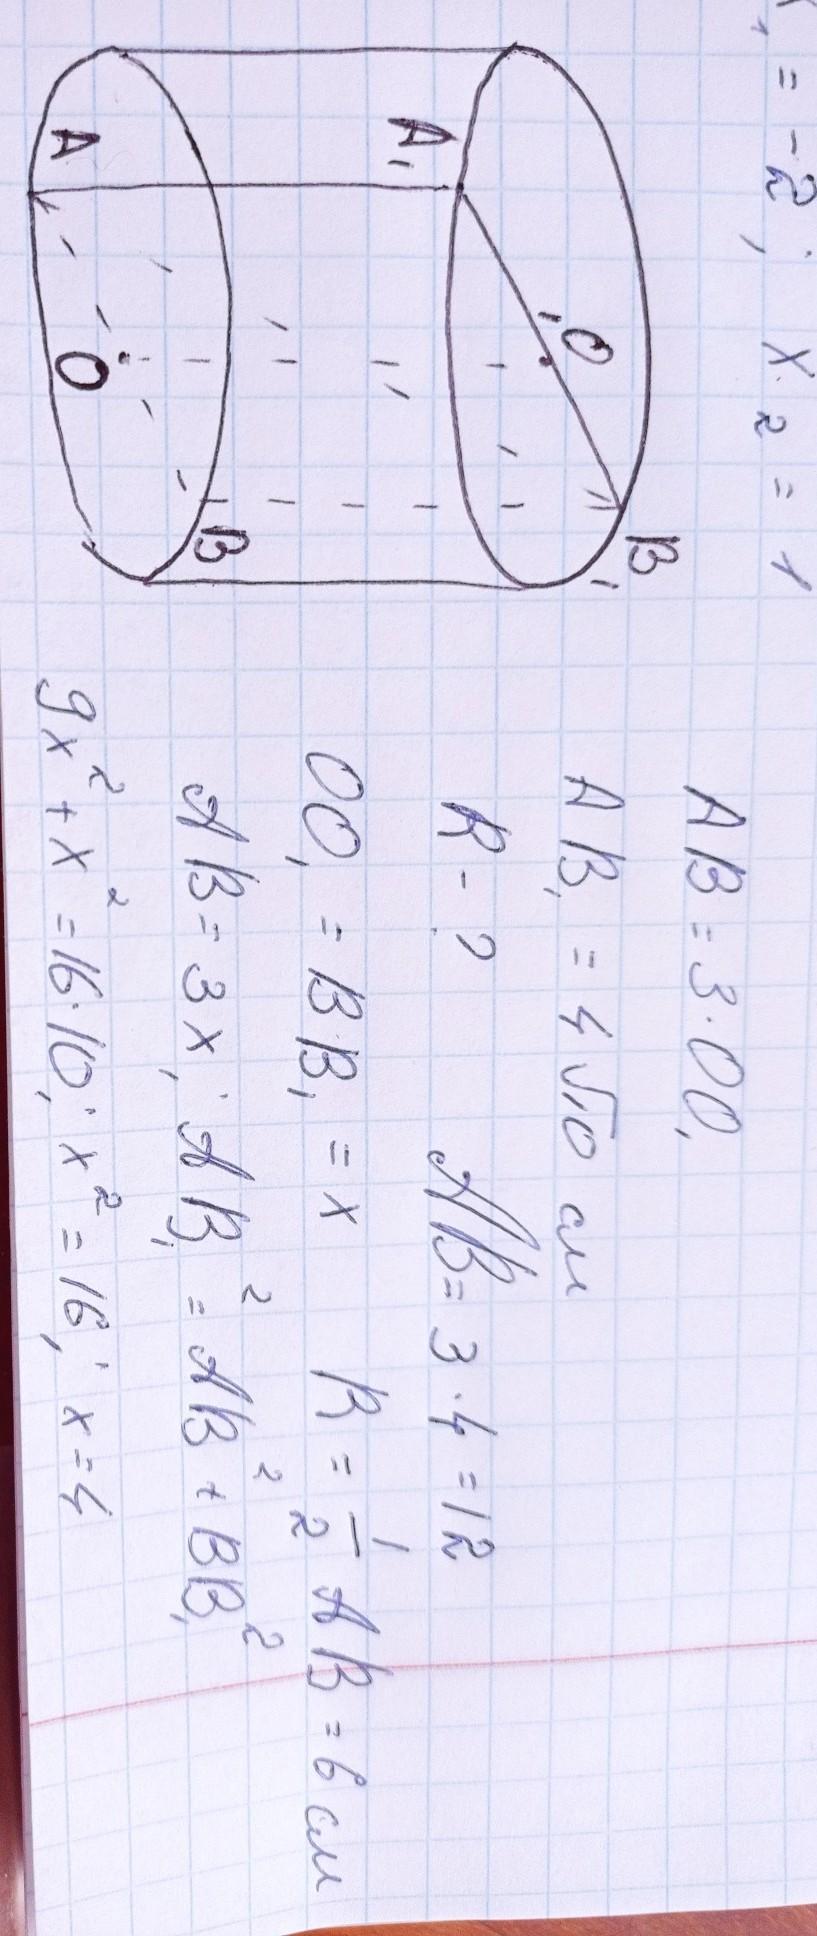 ₁ = -2; x₂ = 1
A₁ O₁ B₁
A O B
AB = 3·OO₁
AB₁ = 4√10 см
R - ? AB = 3·4 = 12
OO₁ = BB₁ = x R = 1/2 AB = 6 см
AB = 3x; AB₁² = AB² + BB₁²
9x² + x² = 16·10; x² = 16; x = 4